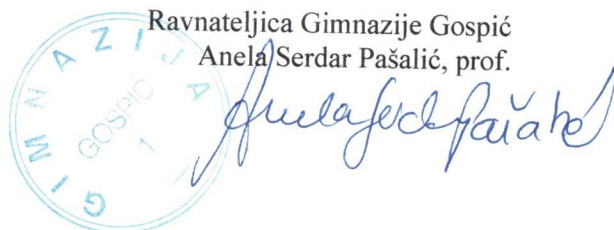 Ravnateljica Gimnazije Gospić
Anela Serdar Pašalić, prof.
GIMNAZIJA
GOSPIĆ
1
Anela Serdar Pašalić